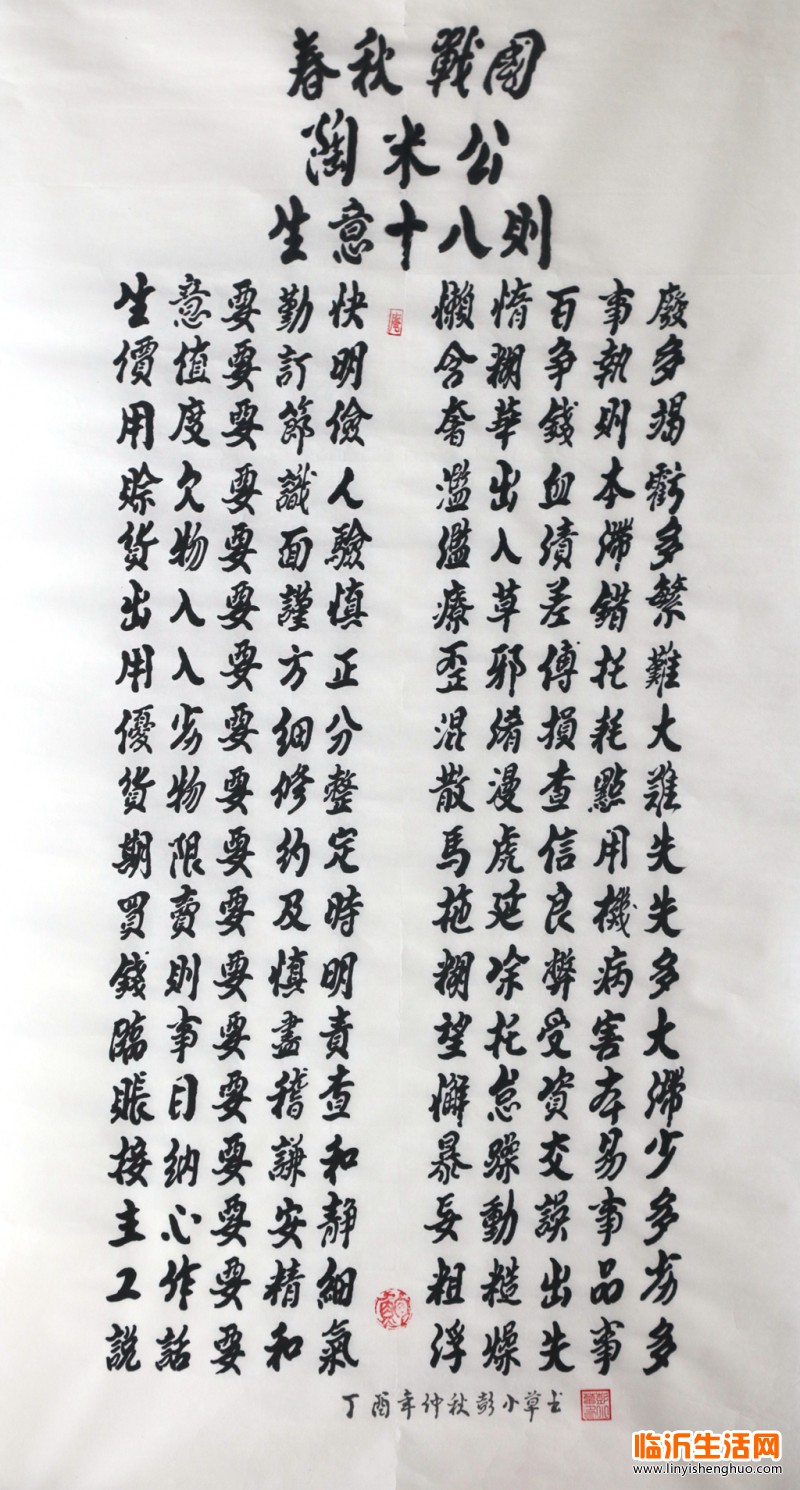 春秋戰國
陶米公
生意十八則
生意要勤快 懶惰百事廢
價值要訂明 含糊爭執多
用度要節儉 奢華錢則竭
賒欠要識人 濫出血本虧
貨物要面驗 入績滯多
出入要謹慎 療草差錯繁
用人要方正 歪邪傅托難
優劣要細分 混淆損耗大
貨物要修整 散漫查點難
期限要約定 馬虎信用失
買賣要及時 拖延良機失
錢則要慎明 糊塗弊病多
臨事要盡責 望托受害大
賬目要稽查 懈怠資本滯
接納要謙和 暴躁交易少
主心要安靜 妄動誤事多
工作要精細 粗糙出品劣
說話要和氣 浮燥失事多
丁酉年仲秋彭小草书
临沂生活网
www.linyishenghuo.com